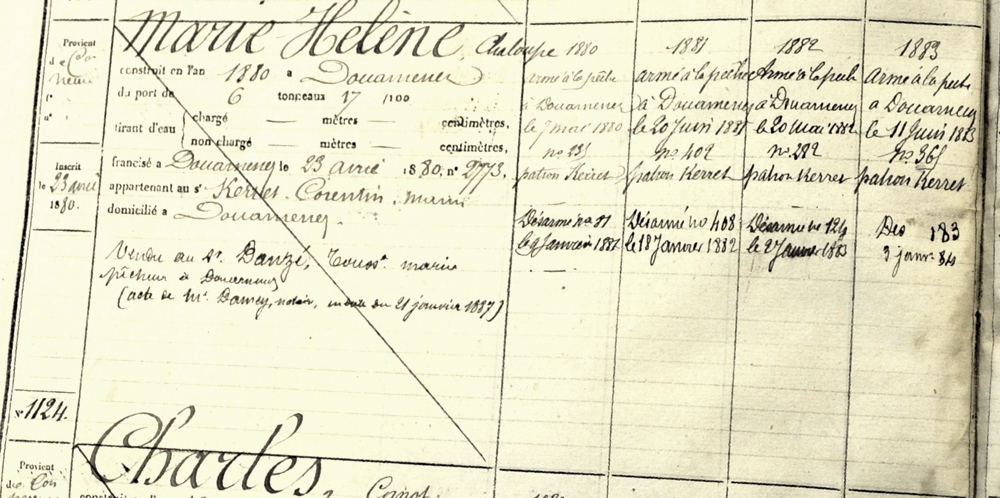 Marie Hélène, Chaloupe
Provient
de Con
neau
f°
n°
construit en l'an 1880 a Douarnenez
du port de 6 tonneaux 17 /100
tirant d'eau { chargé — mètres — centimètres,
non chargé — mètres — centimètres,
francisé a Douarnenez le 23 avril 1880, n° 2773.
appartenant au sr Kerret Corentin, marin
domicilié a Douarnenez
Inscrit
le 23 avril
1880.
Vendu au Sr. Danzé, marin
pêcheur à Douarnenez
(acte de Mr. notaire, du 21 janvier 1887)
1880
Armé à la pêche
à Douarnenez
le 7 mai 1880
n° 235
patron Kerret
Désarmé n° 11
le 9 Janvier 1881
1881
armé à la pêche
à Douarnenez
le 20 Juin 1881
n° 402
patron Kerret
Désarmé n° 408
le 18 Janvier 1882
1882
Armé à la pêche
à Douarnenez
le 20 Mai 1882
n° 292
patron Kerret
Désarmé n° 124
le 27 Janvier 1883
1883
Armé à la pêche
a Douarnenez
le 11 Juin 1883
n° 365
patron Kerret
Des 183
3 janvr 84
N° 1124.
Charles,
Provient
de Con
Canot.